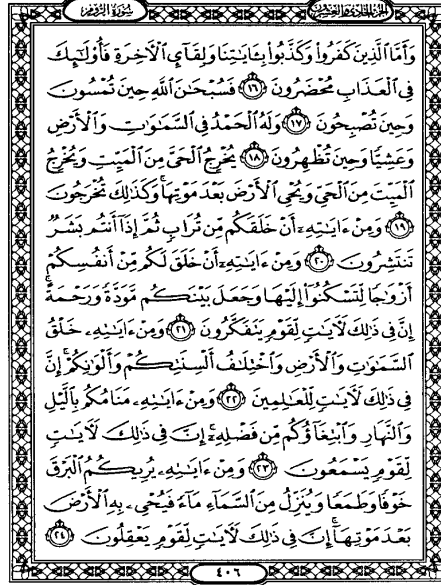 سُورَةُ الرُّومِ
الجُزْءُ الحَادِي وَالعِشْرُونَ
وَأَمَّا ٱلَّذِينَ كَفَرُوا۟ وَكَذَّبُوا۟ بِـَٔايَٰتِنَا وَلِقَآئِ ٱلْـَٔاخِرَةِ فَأُو۟لَٰٓئِكَ
فِى ٱلْعَذَابِ مُحْضَرُونَ ١٦ فَسُبْحَٰنَ ٱللَّهِ حِينَ تُمْسُونَ
وَحِينَ تُصْبِحُونَ ١٧ وَلَهُ ٱلْحَمْدُ فِى ٱلسَّمَٰوَٰتِ وَٱلْأَرْضِ
وَعَشِيًّا وَحِينَ تُظْهِرُونَ ١٨ يُخْرِجُ ٱلْحَىَّ مِنَ ٱلْمَيِّتِ وَيُخْرِجُ
ٱلْمَيِّتَ مِنَ ٱلْحَىِّ وَيُحْىِ ٱلْأَرْضَ بَعْدَ مَوْتِهَا ۚ وَكَذَٰلِكَ تُخْرَجُونَ
١٩ وَمِنْ ءَايَٰتِهِۦٓ أَنْ خَلَقَكُم مِّن تُرَابٍ ثُمَّ إِذَآ أَنتُم بَشَرٌ
تَنتَشِرُونَ ٢٠ وَمِنْ ءَايَٰتِهِۦٓ أَنْ خَلَقَ لَكُم مِّنْ أَنفُسِكُمْ
أَزْوَٰجًا لِّتَسْكُنُوٓا۟ إِلَيْهَا وَجَعَلَ بَيْنَكُم مَّوَدَّةً وَرَحْمَةً ۚ
إِنَّ فِى ذَٰلِكَ لَـَٔايَٰتٍ لِّقَوْمٍ يَتَفَكَّرُونَ ٢١ وَمِنْ ءَايَٰتِهِۦ خَلْقُ
ٱلسَّمَٰوَٰتِ وَٱلْأَرْضِ وَٱخْتِلَٰفُ أَلْسِنَتِكُمْ وَأَلْوَٰنِكُمْ ۚ إِنَّ
فِى ذَٰلِكَ لَـَٔايَٰتٍ لِّلْعَٰلِمِينَ ٢٢ وَمِنْ ءَايَٰتِهِۦ مَنَامُكُم بِٱلَّيْلِ
وَٱلنَّهَارِ وَٱبْتِغَآؤُكُم مِّن فَضْلِهِۦٓ ۚ إِنَّ فِى ذَٰلِكَ لَـَٔايَٰتٍ
لِّقَوْمٍ يَسْمَعُونَ ٢٣ وَمِنْ ءَايَٰتِهِۦ يُرِيكُمُ ٱلْبَرْقَ
خَوْفًا وَطَمَعًا وَيُنَزِّلُ مِنَ ٱلسَّمَآءِ مَآءً فَيُحْىِۦ بِهِ ٱلْأَرْضَ
بَعْدَ مَوْتِهَآ ۚ إِنَّ فِى ذَٰلِكَ لَـَٔايَٰتٍ لِّقَوْمٍ يَعْقِلُونَ ٢٤
٤٠٦